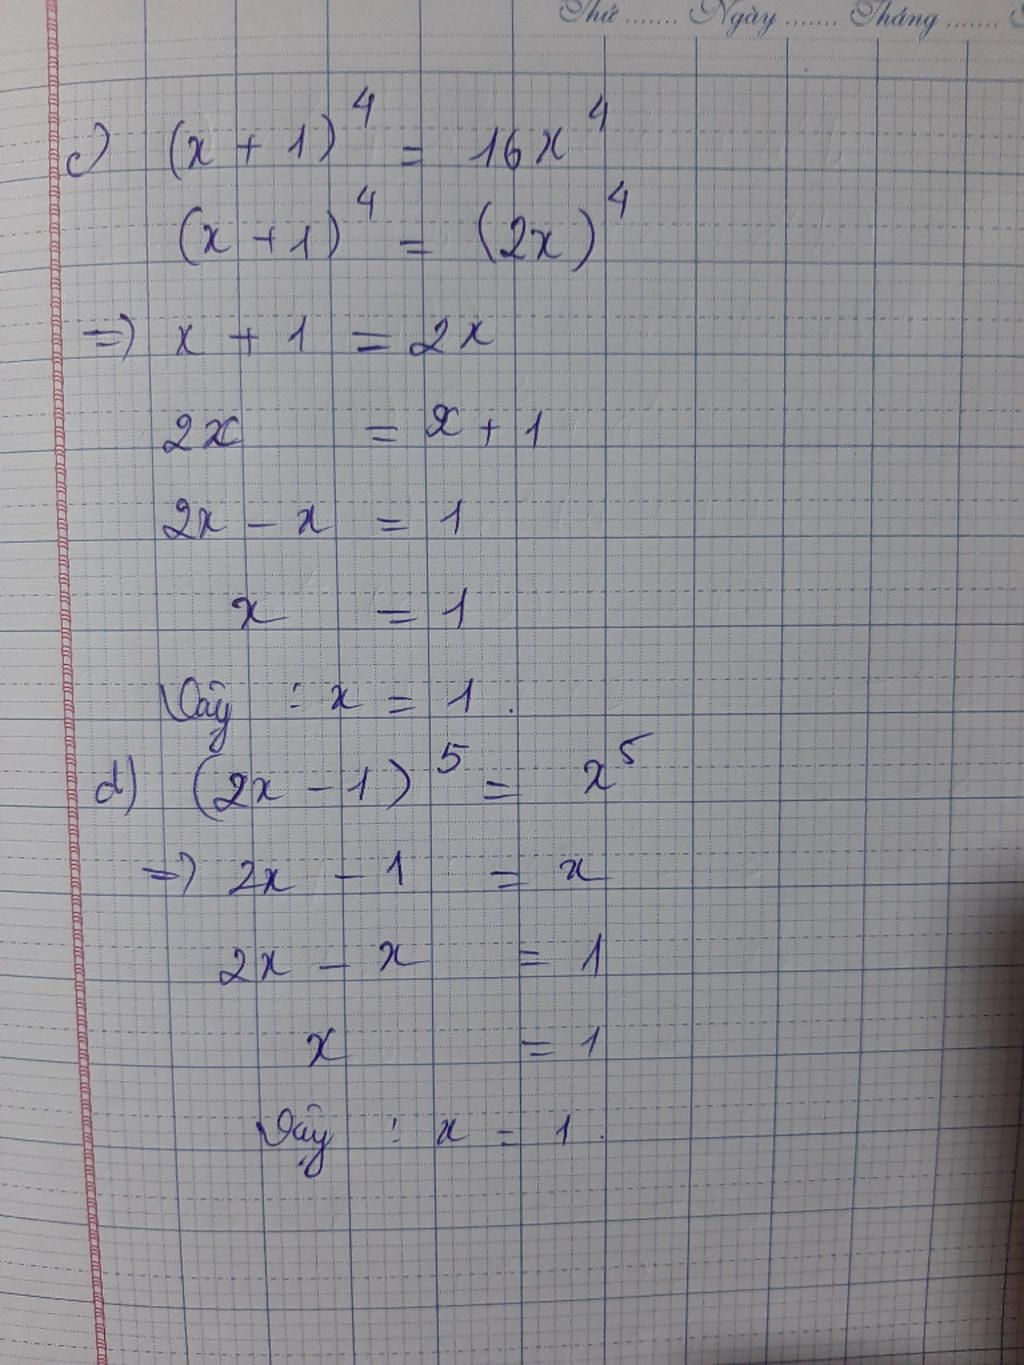 Thứ ....... Ngày ....... Tháng .......
c) (x + 1)⁴ = 16x⁴
(x + 1)⁴ = (2x)⁴
=> x + 1 = 2x
2x = x + 1
2x - x = 1
x = 1
Vậy : x = 1.
d) (2x - 1)⁵ = x⁵
=> 2x - 1 = x
2x - x = 1
x = 1
Vậy : x = 1.